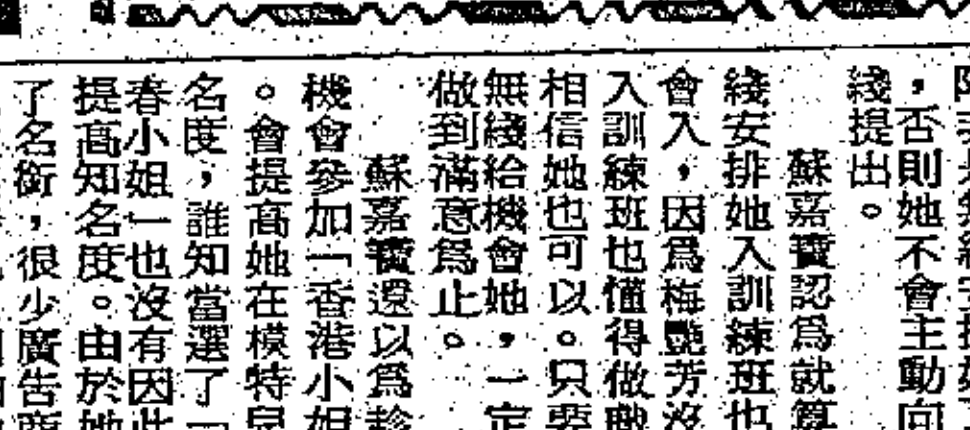 ，否則她不會主動向
綫提出。
蘇嘉寶認爲就算
綫安排她入訓練班也
會入，因爲梅艷芳沒
入訓練班也懂得做職
相信她也可以。只要
無綫給機會她，一定
做到滿意爲止。
蘇嘉寶還以爲趁
機會參加「香港小姐
。會提高她在模特兒
名度，誰知當選了「
春小姐」也沒有因此
提高知名度。由於她
了名銜，很少廣告商